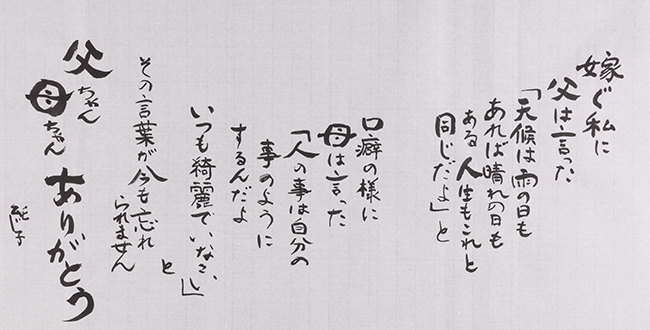 嫁ぐ私に
父は言った
「天候は雨の日も
あれば晴れの日も
ある 人生もこれと
同じだよ」と
口癖の様に
母は言った
「人の事は自分の
事のように
するんだよ
いつも綺麗でいなさい」
と
その言葉が今も忘れ
られません
父ちゃん
母ちゃん ありがとう